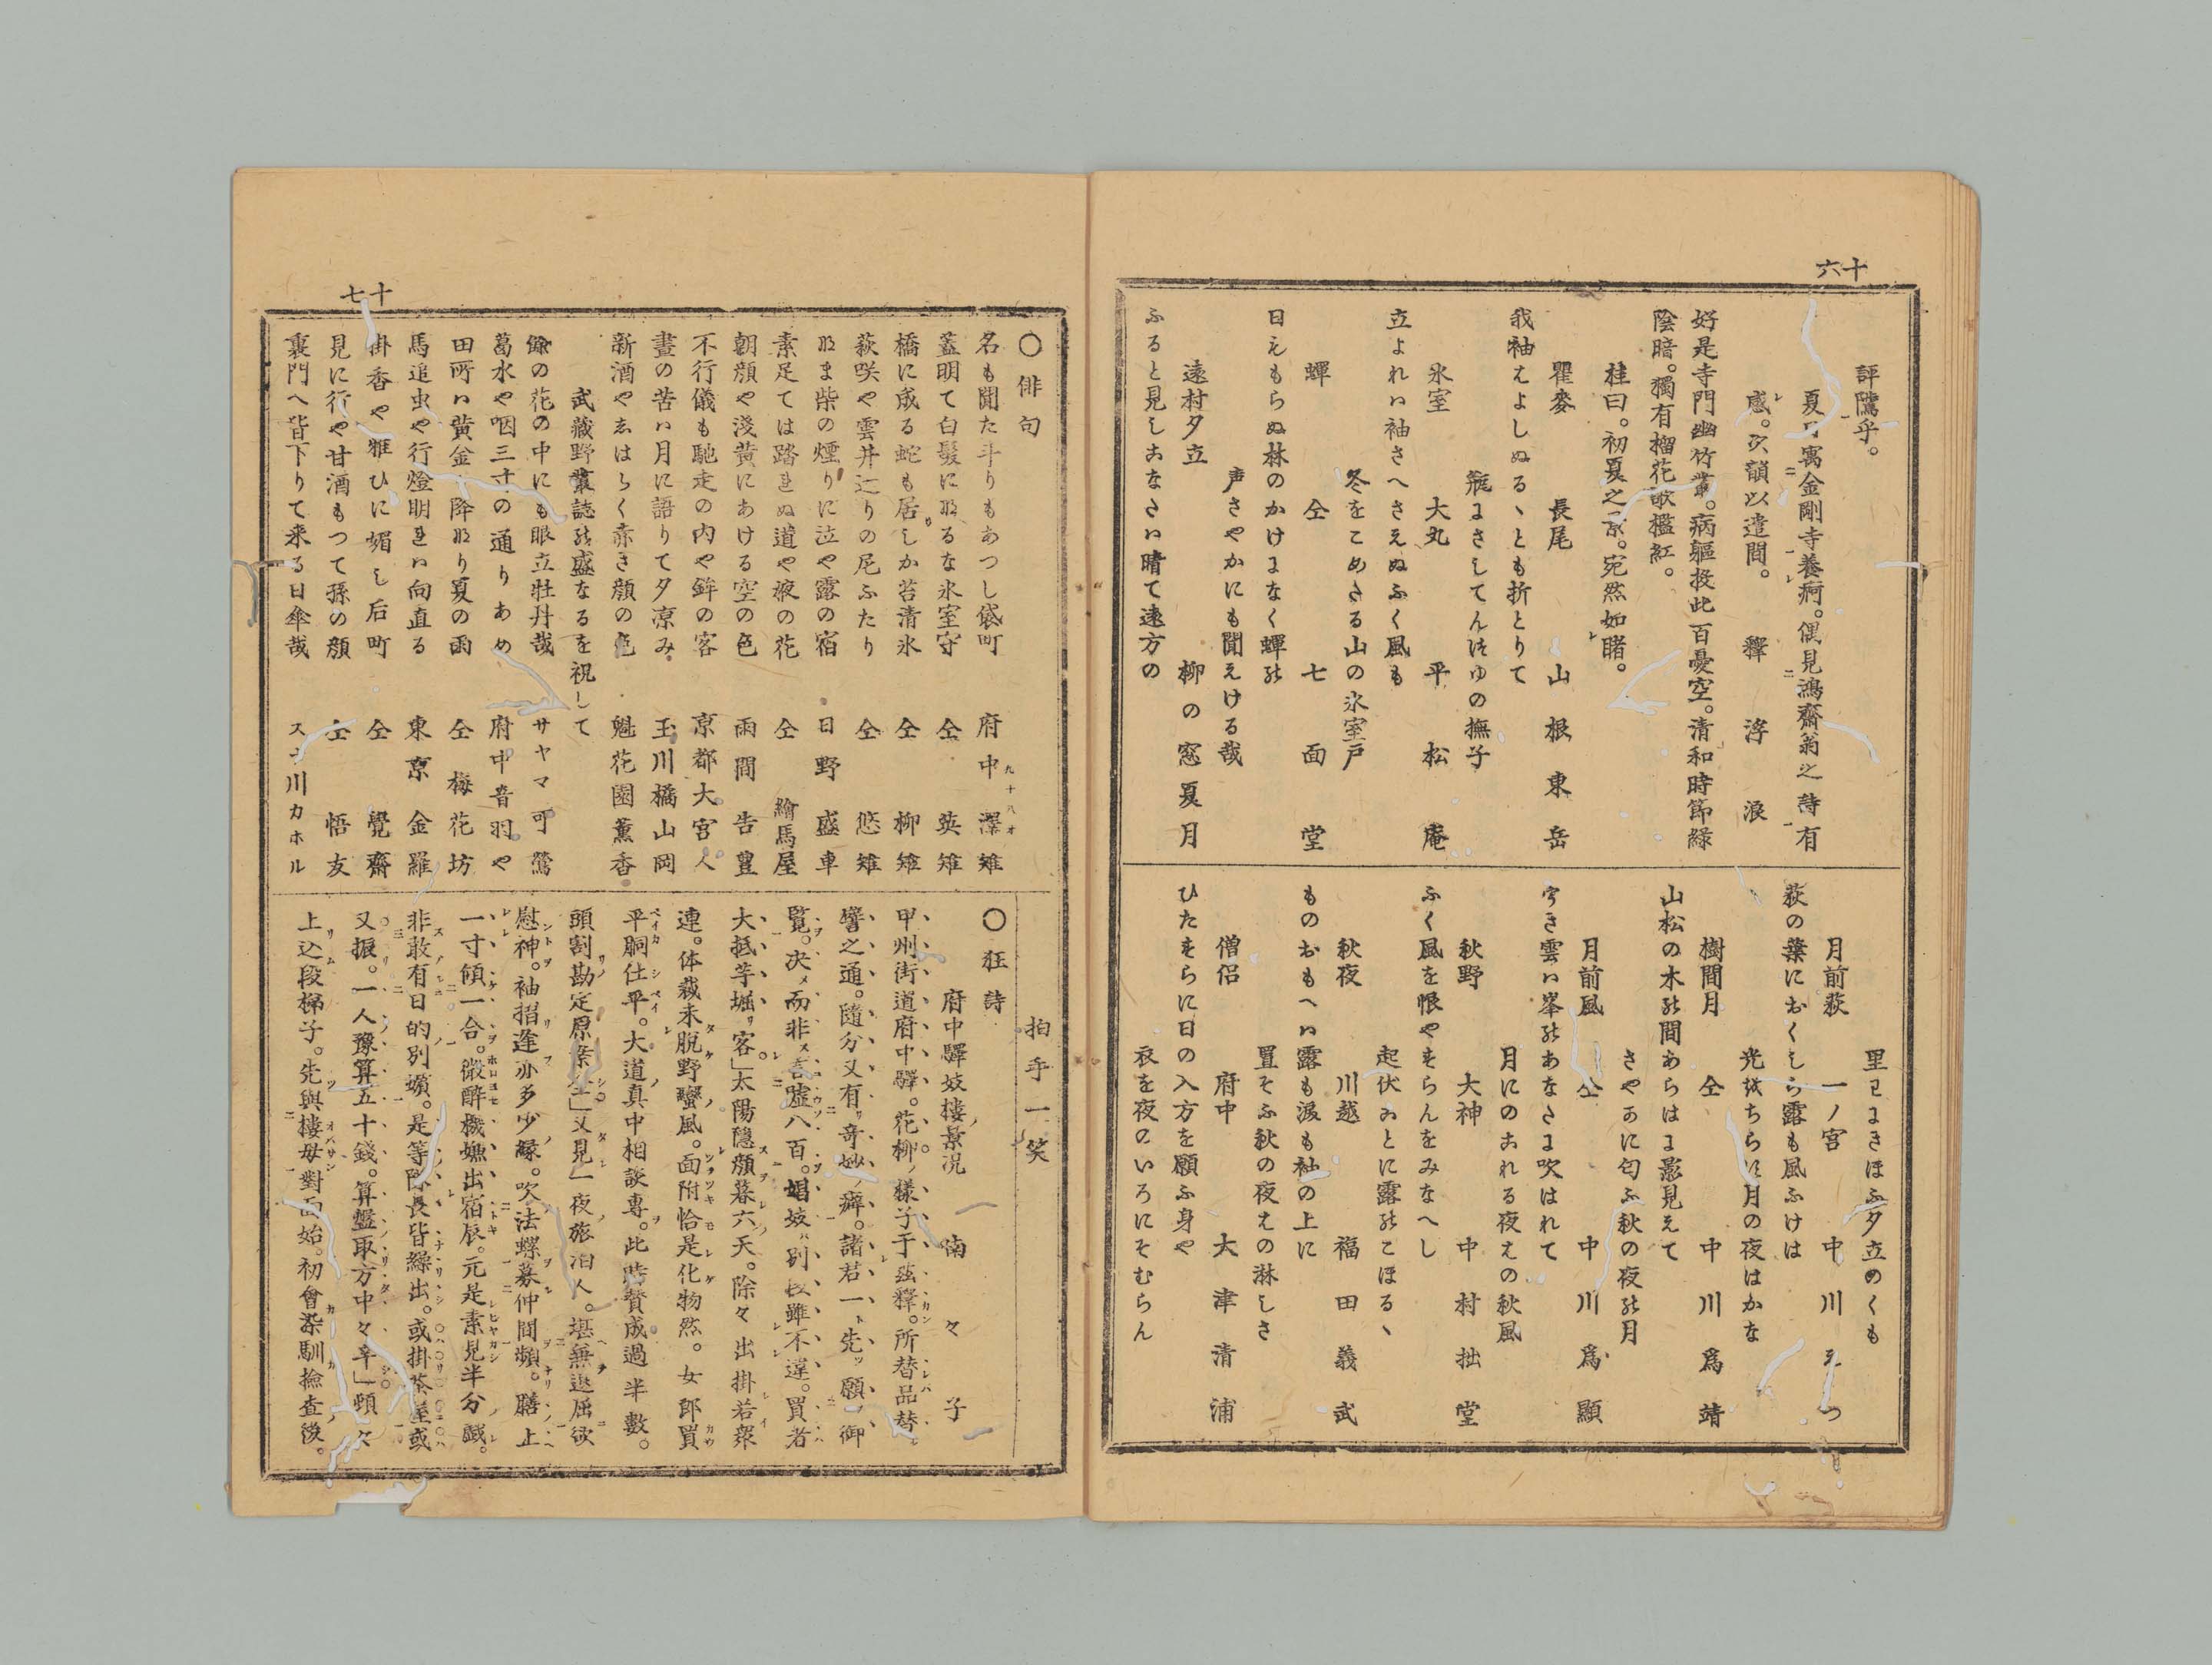 十六
評隲乎。
夏日寓金剛寺養痾。偶見鴻齋翁之詩有
感。次韻以遣悶。 釋浮浪
好是寺門幽竹叢。病軀投此百憂空。清和時節緑
陰暗。獨有榴花歌檻紅。
桂曰。初夏之景。宛然如睹。
瞿麥 長尾 山根東岳
我袖はよしぬるヽとも折とりて
瓶にさしてん佐ゆの撫子
氷室 大丸 平松庵
立よれハ袖さへさえぬふく風も
冬をこめたる山の氷室戸
蟬 仝 七面堂
日えもらぬ林のかけになく蟬の
声さやかにも聞えける哉
遠村夕立 柳の窓夏月
ふると見しおなたハ晴て遠方の
里にまきほふ夕立のくも
月前萩 一ノ宮 中川
萩の葉におくしら露も風ふけは
光をちらに月の夜はかな
樹間月 仝 中川爲靖
山松の木の間あらはに影見えて
さやかに匂ふ秋の夜の月
月前風 仝 中川爲顯
うき雲ハ峯のあなたに吹はれて
月にのこれる夜はの秋風
秋野 大神 中村拙堂
ふく風を恨やすらんをみなへし
起伏ことに露のこほるヽ
秋夜 川越 福田義武
ものおもへハ露も涙も袖の上に
置そふ秋の夜はの淋しさ
僧侶 府中 大津清浦
ひたすらに日の入方を願ふ身や
衣を夜のいろにそむらん
十七
〇俳句
名も聞た斗りもあつし袋町 府中 九十八才 澤雉
蓋明て白髮になるな氷室守 仝 英雉
橋に成る蛇も居しか苔清水 仝 柳雉
萩咲や雲井辺りの尼ふたり 仝 悠雉
なま柴の煙りに泣や露の宿 日野 盛車
素足ては踏れぬ道や夜の花 仝 繪馬屋
朝顔や淺黄にあける空の色 雨間 告豊
不行儀も馳走の内や鉾の客 京都大宮人
晝の苦ハ月に語りて夕凉み 玉川橘山岡
新酒や志はらく赤き顔の色 魁花園薫香
武藏野叢誌の盛なるを祝して
餘の花の中にも眼立牡丹哉 サヤマ可鶯
葛水や咽三寸の通りあめ 府中音羽や
田町ハ黄金降なり夏の雨 仝 梅花坊
馬追虫や行燈明れハ向直る 東京 金羅
掛香や雅ひに媚し后町 仝 覺齋
見に行や甘酒もつて孫の顔 仝 悟友
裏門へ皆下りて来る日傘哉 川カホル
拍手一笑
〇狂詩
府中驛妓樓景況 南々子
甲州街道府中驛。花柳ノ樣子于茲釋。所替品替
譬之通。隨分又有奇妙癖。諸君一ト先ッ願御
覽。决メ而非ス言嘘八百。娼妓ハ別段雖不違。買者
大抵芋堀リ客」太陽隠顔暮六天。除々出掛若衆
連。体裁未脱野蠻風。面附恰是化物然。女郎買
平胴仕平。大道真中相談專。此時賛成過半數。
頭割勘定原案全」又見一夜旅泊人。堪無退屈欲
慰神。袖招逢亦多少縁。吹法螺募仲間頻。膳上
一寸傾一合。微醉機嫌出宿辰。元是素見半分戯。
非敢有目的別嬪。是等隊長皆繰出。或掛茶屋或
又振。一人豫算五十錢。算盤取方中々辛」頓
上込段梯子。先與樓母對面始。初會染馴撿査後。